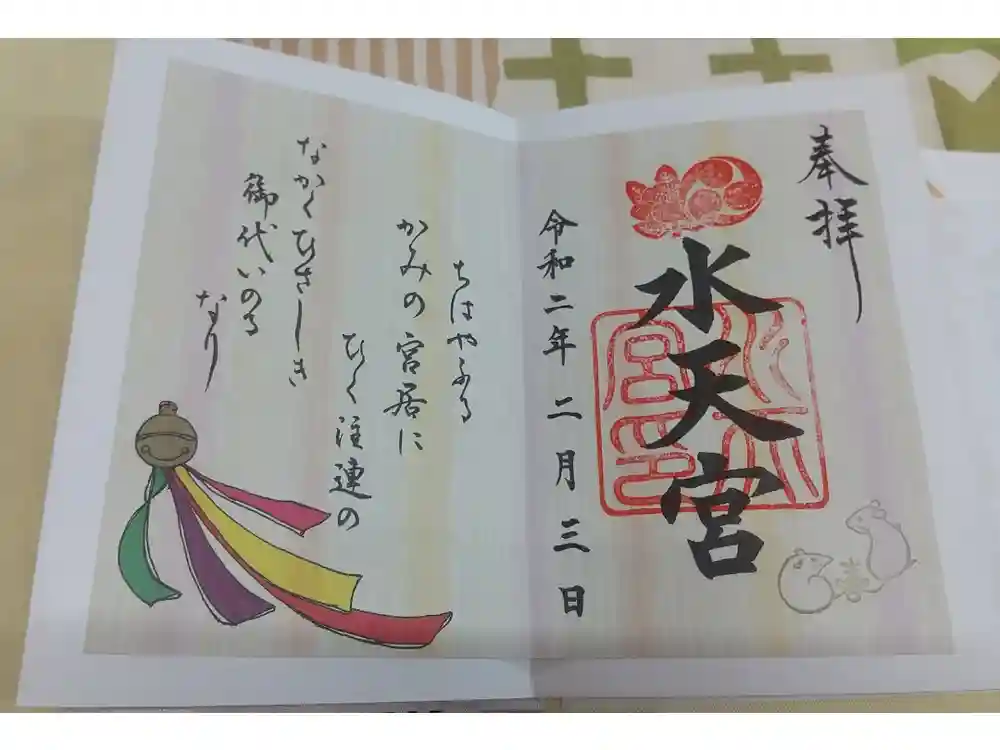 奉拝
水天宮
令和二年二月三日
ちはやふる
かみの宮居に
ひく注連の
なかくひさしき
御代いのる
なり